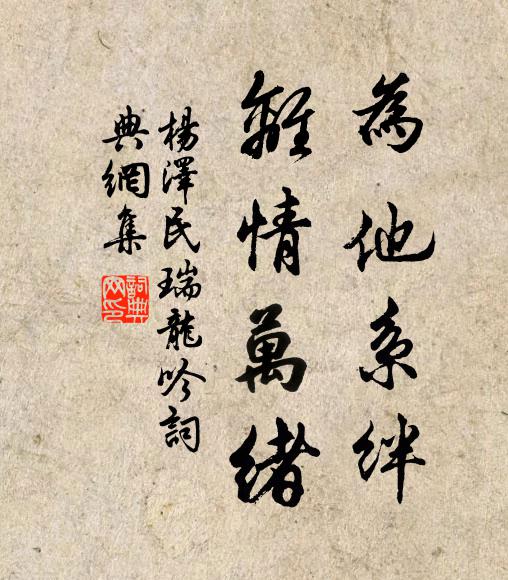 為他系絆
離情萬緒
楊澤民瑞龍吟詞
典網集
詞典網印